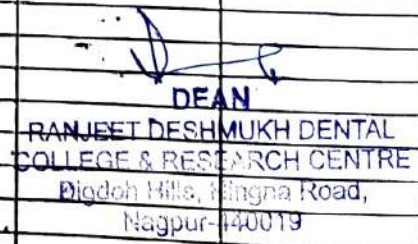 DEAN
RANJEET DESHMUKH DENTAL
COLLEGE & RESEARCH CENTRE
Digdoh Hills, Hingna Road,
Nagpur-440019